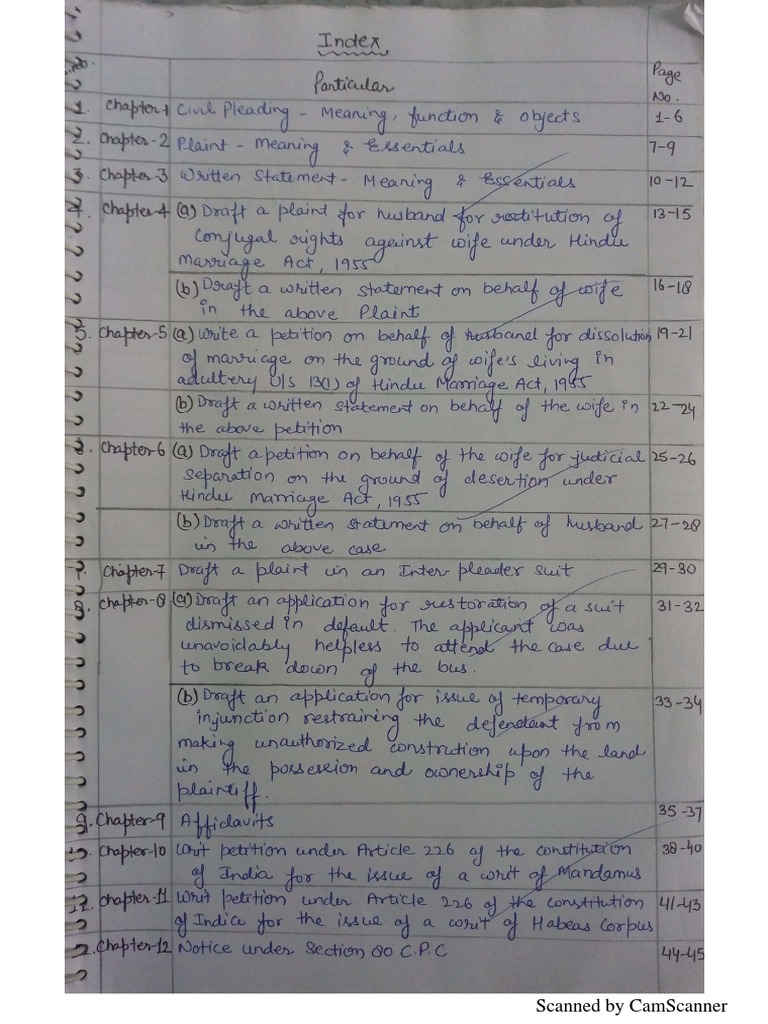 Index
Particular
Page
No.
1. Chapter-1 Civil Pleading - Meaning, function & objects 1-6
2. Chapter-2 Plaint - Meaning & Essentials 7-9
3. Chapter-3 Written Statement - Meaning & Essentials 10-12
4. Chapter-4 (a) Draft a plaint for husband for restitution of 13-15
conjugal rights against wife under Hindu
Marriage Act, 1955
(b) Draft a written statement on behalf of wife 16-18
in the above Plaint
5. Chapter-5 (a) Write a petition on behalf of husband for dissolution 19-21
of marriage on the ground of wife's living in
adultery U/S 13(1) of Hindu Marriage Act, 1955
(b) Draft a written statement on behalf of the wife in 22-24
the above petition
6. Chapter-6 (a) Draft a petition on behalf of the wife for judicial 25-26
separation on the ground of desertion under
Hindu Marriage Act, 1955
(b) Draft a written statement on behalf of husband 27-28
in the above case
7. Chapter-7 Draft a plaint in an Inter pleader suit 29-30
8. Chapter-8 (a) Draft an application for restoration of a suit 31-32
dismissed in default. The applicant was
unavoidably helpless to attend the case due
to break down of the bus.
(b) Draft an application for issue of temporary 33-34
injunction restraining the defendant from
making unauthorized constrution upon the land
in the possession and ownership of the
plaintiff.
9. Chapter-9 Affidavits 35-37
Chapter-10 Writ petition under Article 226 of the constitution 38-40
of India for the issue of a writ of Mandamus
Chapter-11 Writ petition under Article 226 of the constitution 41-43
of India for the issue of a writ of Habeas Corpus
Chapter-12 Notice under Section 80 C.P.C 44-45
Scanned by CamScanner